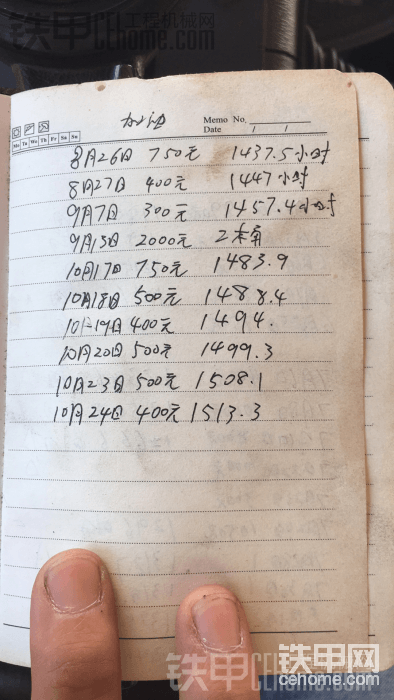 铁甲 工程机械网
CEhome.com
加油
Memo No.
Mo Tu We Th Fr Sa Su
Date / /
8月26日 750元 1437.5小时
8月27日 400元 1447小时
9月7日 300元 1457.4小时
9月13日 2000元 2本角
10月17日 750元 1483.9
10月18日 500元 1488.4
10月19日 400元 1494.
10月20日 500元 1499.3
10月23日 500元 1508.1
10月24日 400元 1513.3
铁甲网
CEhome.com